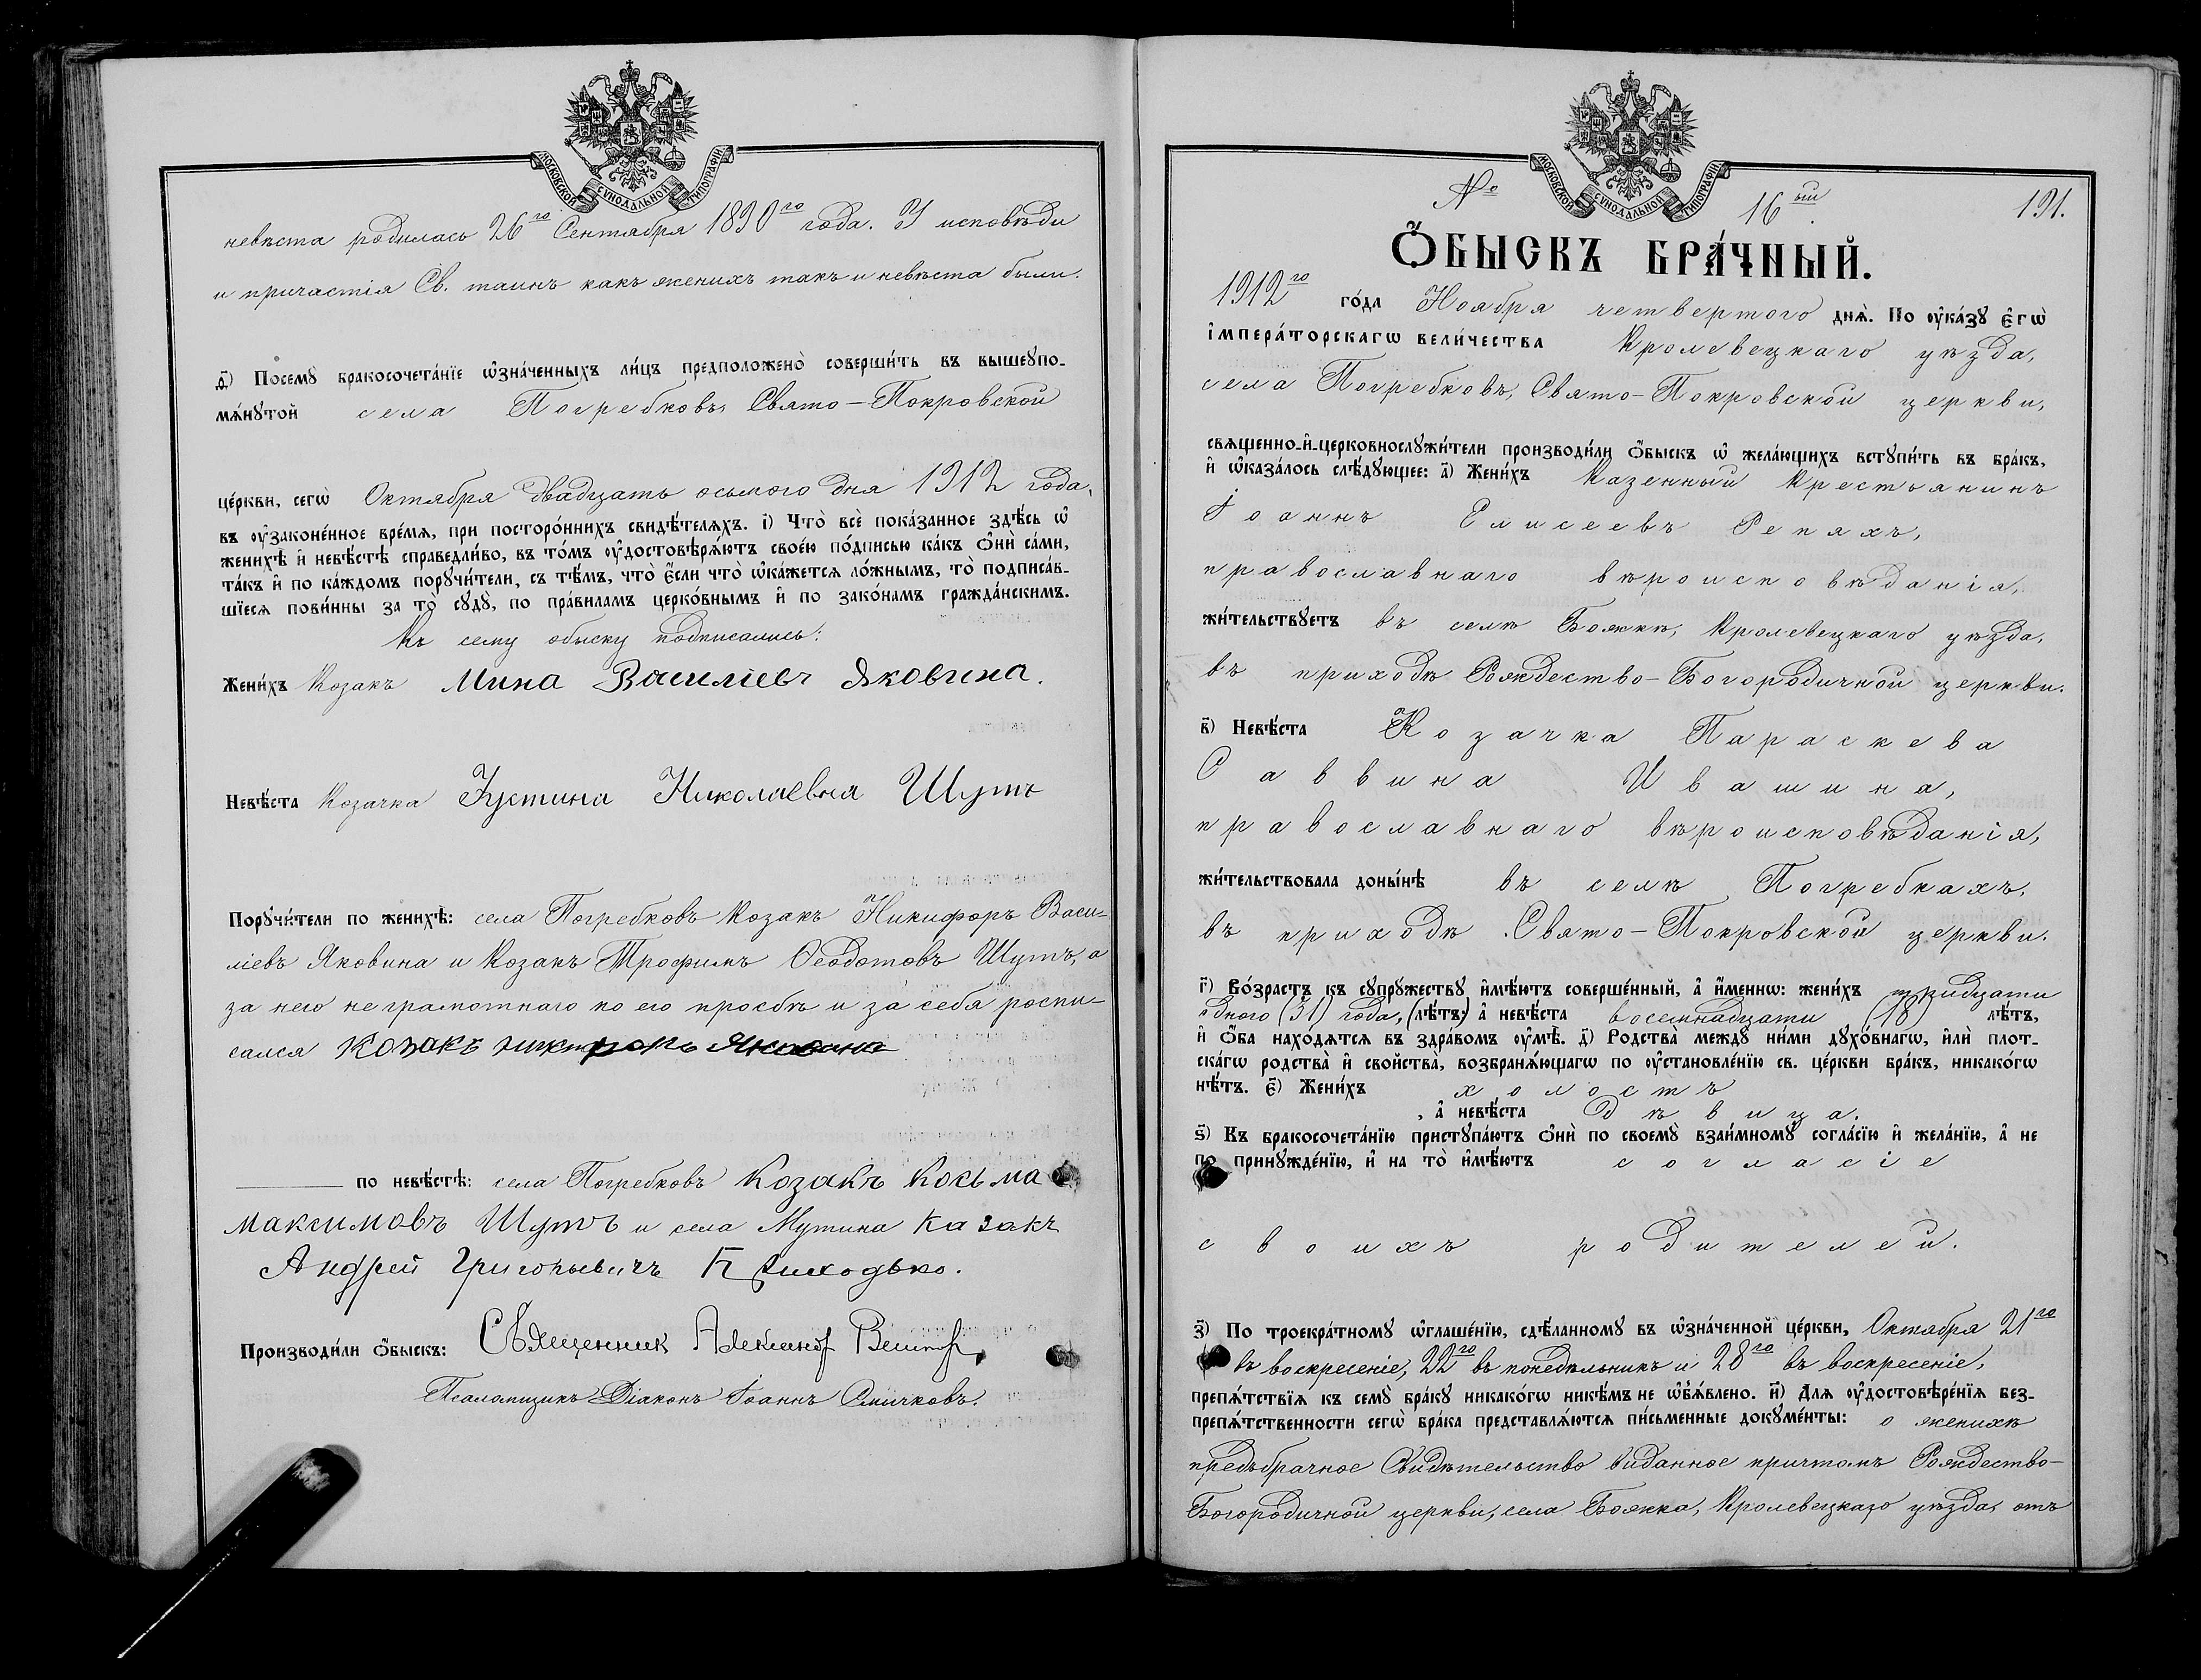 МОСКОВСКОЙ СУНОДАЛЬНОЙ ТИПОГРАФІИ
невѣста родилась 26го Сентября 1890го года. У исповѣди
и причастія Св. таинъ какъ женихъ такъ и невѣста были.
ѳ҃) Посемꙋ бракосочета́нїе ѡ҆зна́ченныхъ ли́цъ предположено̀ соверши́ть въ вышеꙋпо-
мѧ́нꙋтой села Погребковъ, Свято-Покровской
це́ркви, сегѡ̀ Октября двадцать осьмого дня 1912 года,
въ ᲂу҆зако́ненное вре́мѧ, при посторо́ннихъ свидѣ́телѧхъ. і҃) Что̀ всѐ пока́занное здѣ́сь ѡ҆
женихѣ̀ и҆ невѣ́стѣ справедли́во, въ то́мъ ᲂу҆достовѣрѧ́ютъ свое́ю по́дписью ка́къ ѻ҆нѝ са́ми,
та́къ и҆ по ка́ждомъ порꙋчи́тели, съ тѣ́мъ, что̀ є҆́сли что̀ ѡ҆ка́жетсѧ ло́жнымъ, то̀ подписа́в-
шїесѧ пови́нны за то̀ сꙋдꙋ̀, по пра́виламъ церко́внымъ и҆ по зако́намъ гражда́нскимъ.
Къ сему обыску подписались:
Жени́хъ Козакъ Мина Василіевъ Яковина.
Невѣ́ста Козачка Іустина Николаевна Шутъ
Порꙋчи́тели по женихѣ̀: села Погребковъ Козакъ Никифоръ Васи-
ліевъ Яковина и Козакъ Трофимъ Ѳеодотовъ Шутъ, а
за него не грамотнаго по его просьбѣ и за себя роспи-
сался Козакъ Яковина
по невѣ́стѣ: села Погребковъ Козакъ Косьма
Максимовъ Шутъ и села Мутина Казакъ
Андрей Григорьевичъ Приходько.
Производи́ли ѻ҆́быскъ: Священник Александр
Псаломщикъ Діаконъ Іоаннъ Смичковъ.
МОСКОВСКОЙ СУНОДАЛЬНОЙ ТИПОГРАФІИ
№ 16ый 191.
Ѻ҆́БЫСКЪ БРА́ЧНЫЙ.
1912го го́да Ноября четвертого днѧ̀. По ᲂу҆ка́зꙋ є҆гѡ̀
і҆мпера́торскагѡ вели́чества Кролевецкаго уѣзда,
села Погребковъ, Свято-Покровской церкви,
свѧщенно-и҆-церковнослꙋжи́тели производи́ли ѻ҆́быскъ ѡ҆ жела́ющихъ встꙋпи́ть въ бра́къ,
и҆ ѡ҆каза́лось слѣ́дꙋющее: а҃) Жени́хъ Казенный Крестьянинъ
Іоаннъ Елисеевъ Репяхъ,
православнаго вѣроисповѣданія,
жи́тельствꙋетъ въ селѣ Божкѣ, Кролевецкаго уѣзда,
въ приходѣ Рождество-Богородичной церкви.
в҃) Невѣ́ста Козачка Параскева
Саввина Ивашина,
православнаго вѣроисповѣданія,
жи́тельствовала доны́нѣ въ селѣ Погребкахъ,
въ приходѣ Свято-Покровской церкви.
г҃) Во́зрастъ къ сꙋпрꙋ́жествꙋ и҆мѣ́ютъ соверше́нный, а҆ и҆́меннѡ: жени́хъ тридцати
одного (31) года, (лѣ́тъ;) а҆ невѣ́ста восемнадцати (18) лѣ́тъ,
и҆ ѻ҆́ба нахо́дѧтсѧ въ здра́вомъ ᲂу҆мѣ̀. д҃) Родства̀ междꙋ̀ ни́ми дꙋхо́внагѡ, и҆лѝ плот-
ска́гѡ родства̀ и҆ свойства̀, возбранѧ́ющагѡ по ᲂу҆становле́нїю св. це́ркви бра́къ, никако́гѡ
нѣ́тъ. є҃) Жени́хъ холостъ
, а҆ невѣ́ста дѣвица.
ѕ҃) Къ бракосочета́нїю пристꙋпа́ютъ ѻ҆нѝ по своемꙋ̀ взаи́мномꙋ согла́сїю и҆ жела́нїю, а҆ не
по принꙋжде́нїю, и҆ на то̀ и҆мѣ́ютъ согласіе
своихъ родителей.
з҃) По троекра́тномꙋ ѡ҆глаше́нїю, сдѣ́ланномꙋ въ ѡ҆зна́ченной це́ркви, Октября 21го
въ воскресеніе, 22го въ понедѣльникъ и 28го въ воскресеніе,
препѧ́тствїѧ къ семꙋ̀ бра́кꙋ никако́гѡ никѣ́мъ не ѡ҆б̾ѧ́влено. и҃) Длѧ ᲂу҆достовѣре́нїѧ без-
препѧ́тственности сегѡ̀ бра́ка представлѧ́ютсѧ пи́сьменные докꙋме́нты: о женихѣ
предъбрачное Свидѣтельство виданное причтомъ Рождество-
Богородичной церкви, села Божка, Кролевецкаго уѣзда, отъ